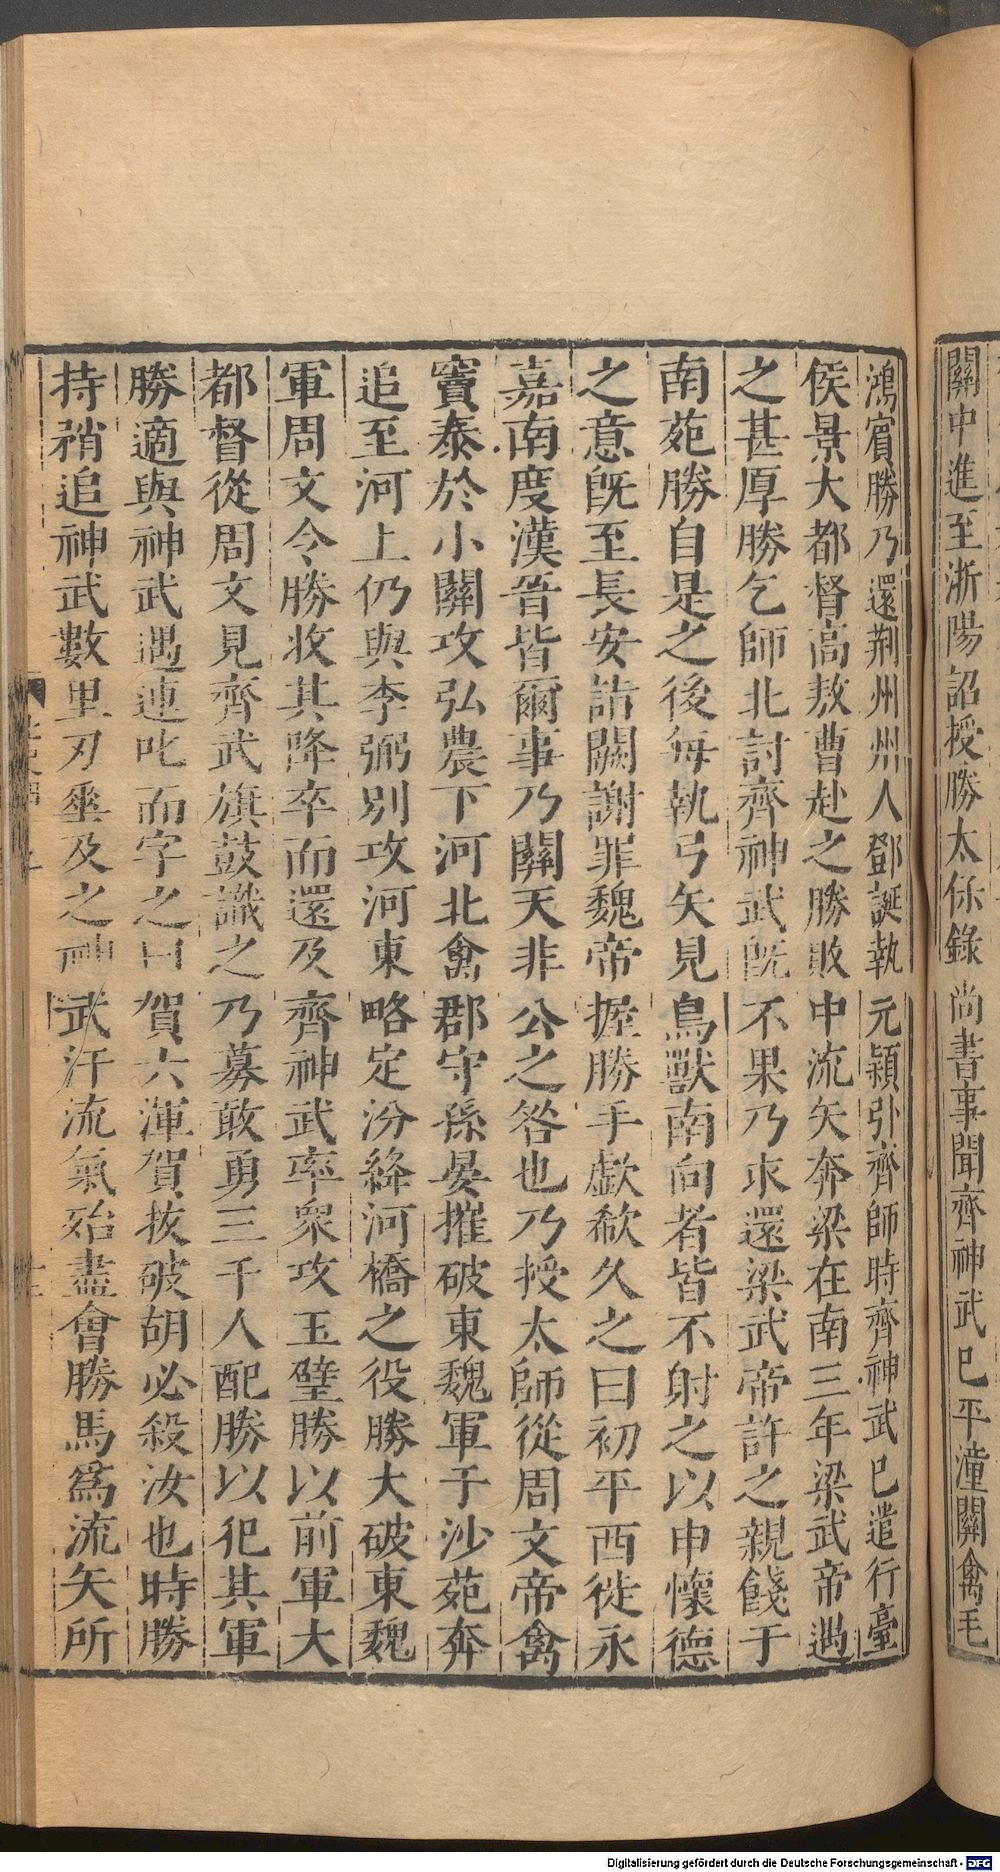 關中進至浙陽詔授勝太保錄尚書事聞齊神武已平潼關禽毛
鴻賓勝乃還荆州州人鄧誕執元穎引齊師時齊神武已遣行臺
侯景大都督高敖曹赴之勝敗中流矢奔梁在南三年梁武帝遇
之甚厚勝乞師北討齊神武旣不果乃求還梁武帝許之親餞于
南苑勝自是之後每執弓矢見鳥獸南向者皆不射之以申懷德
之意旣至長安詣闕謝罪魏帝握勝手歔欷久之曰初平西徙永
嘉南度漢晉皆爾事乃關天非公之咎也乃授太師從周文帝禽
竇泰於小關攻弘農下河北禽郡守孫晏摧破東魏軍于沙苑奔
追至河上仍與李弼别攻河東略定汾絳河橋之役勝大破東魏
軍周文令勝收其降卒而還及齊神武率衆攻玉壁勝以前軍大
都督從周文見齊武旗鼓識之乃募敢勇三千人配勝以犯其軍
勝適與神武遇連叱而字之曰賀六渾賀拔破胡必殺汝也時勝
持矟追神武數里刃垂及之神武汗流氣殆盡會勝馬爲流矢所
Digitalisierung gefördert durch die Deutsche Forschungsgemeinschaft - DFG